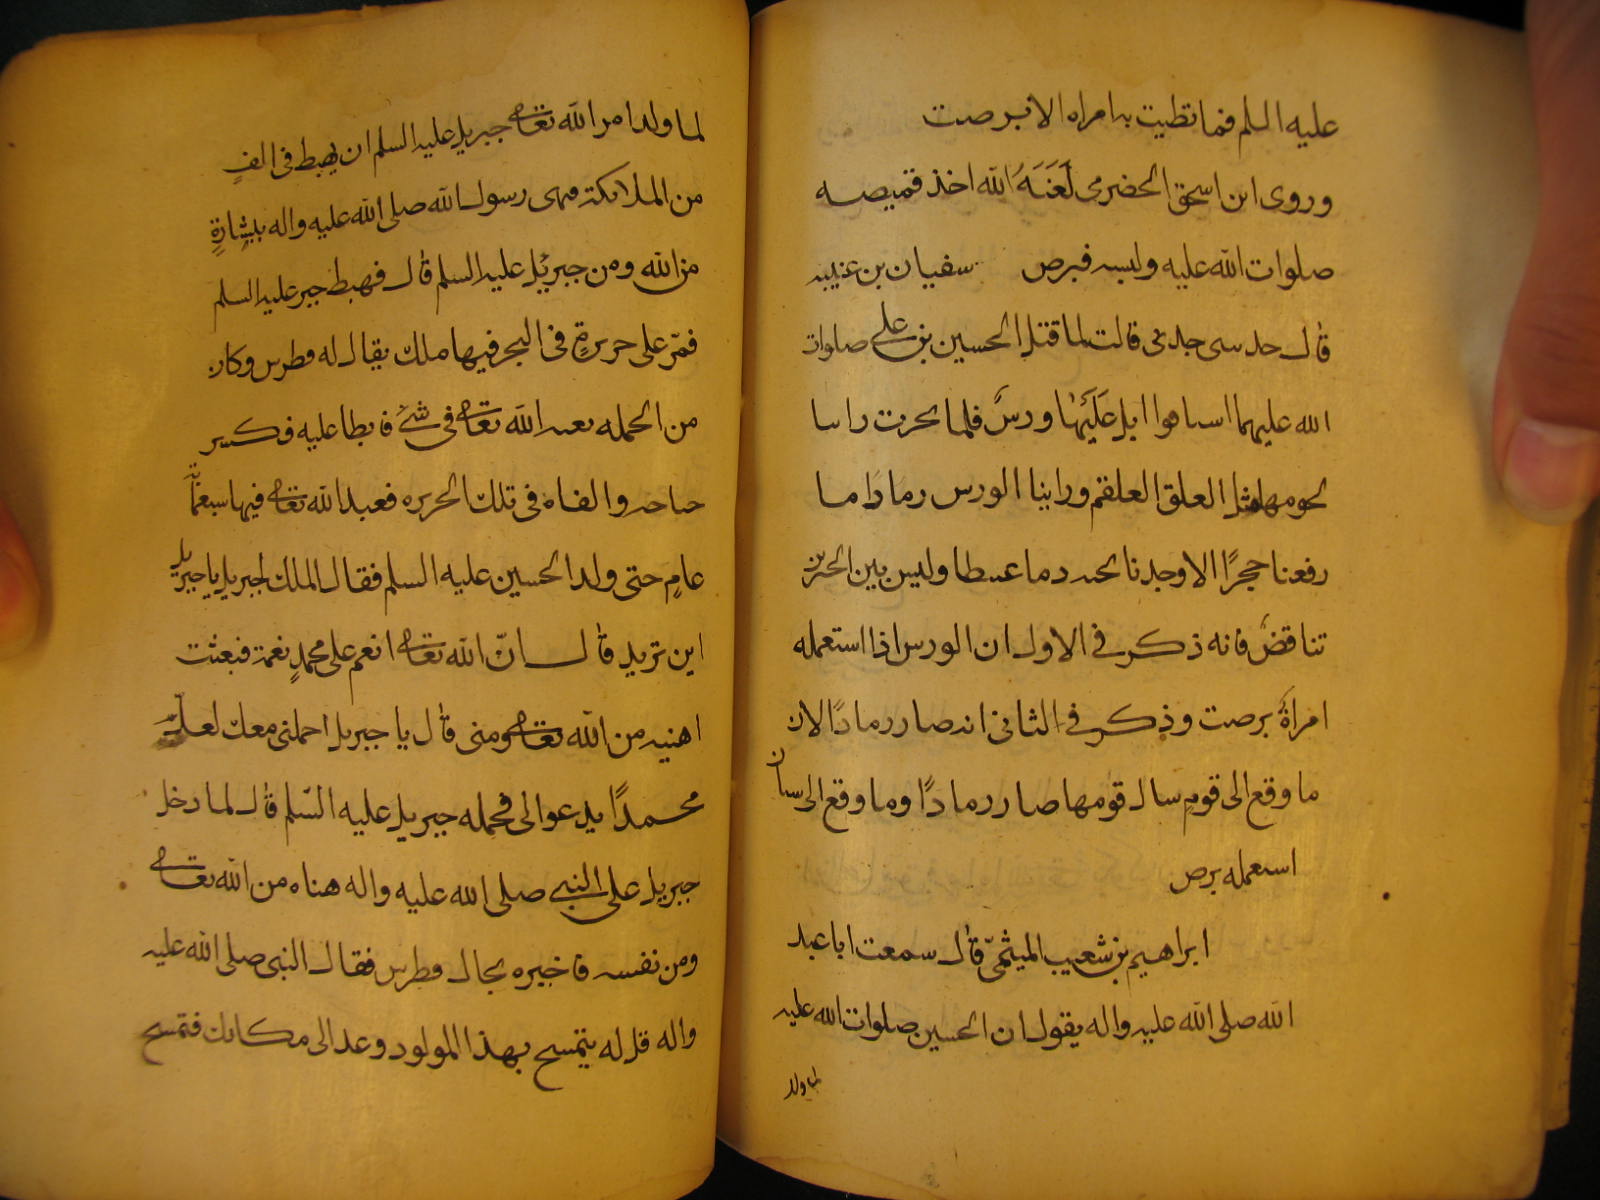 عليه السلم فما تطيبت به امراه الا برصت
وروى ابن اسحق الحضرمى لَعَنَهُ الله اخذ قميصه
صلوات الله عليه ولبسه فبرص سفيان بن عيينه
قال حدثنى جدتى قالت لما قتل الحسين بن على صلوات
الله عليهما استاقوا ابل عَلَيْهَا ورسٌ فلما نحرت راينا
لحومها مثل العلق العلقم وراينا الورس رمادًا ما
رفعنا حجرًا الا وجدنا تحته دما عبيطا وليس بين الخبرين
تناقضٌ فانه ذكر فى الاول ان الورس اذا استعمله
امراةٌ برصت وذكر فى الثانى انه صار رمادًا لان
ما وقع الى قومٍ قومها صار رمادًا وما وقع الى
استعمله برص
ابراهيم بن شعيب الميثمىّ قال سمعت ابا عبد
الله صلى الله عليه واله يقول ان الحسين صلوات الله عليه
لما ولد
لما ولد امر الله تعالى جبريل عليه السلم ان يهبط فى الفٍ
من الملائكة فيهنى رسول الله صلى الله عليه واله ببشارةٍ
من الله ومن جبريل عليه السلم قال فهبط جبر عليه السلم
فمرّ على جزيرةٍ فى البحر فيها ملك يقال له فطرس وكان
من الحمله بعثه الله تعالى فى شئ فابطا عليه فكسر
جناحه والقاه فى تلك الجزيره فعبد الله تعالى فيها سبعمائة
عامٍ حتى ولد الحسين عليه السلم فقال الملك لجبريل يا جبريل
اين تريد قال انّ الله تعالى انعم على محمدٍ نعمة فبعثت
اهنيه من الله تعالى ومنى قال يا جبريل احملنى معك لعل
محمدًا يدعو الى فحمله جبريل عليه السّلم قال لما دخل
جبريل على النبى صلى الله عليه واله هناه من الله تعالى
ومن نفسه فاخبره بحال فطرس فقال النبى صلى الله عليه
واله قل له يتمسح بهذا المولود وعد الى مكانك فتمسح